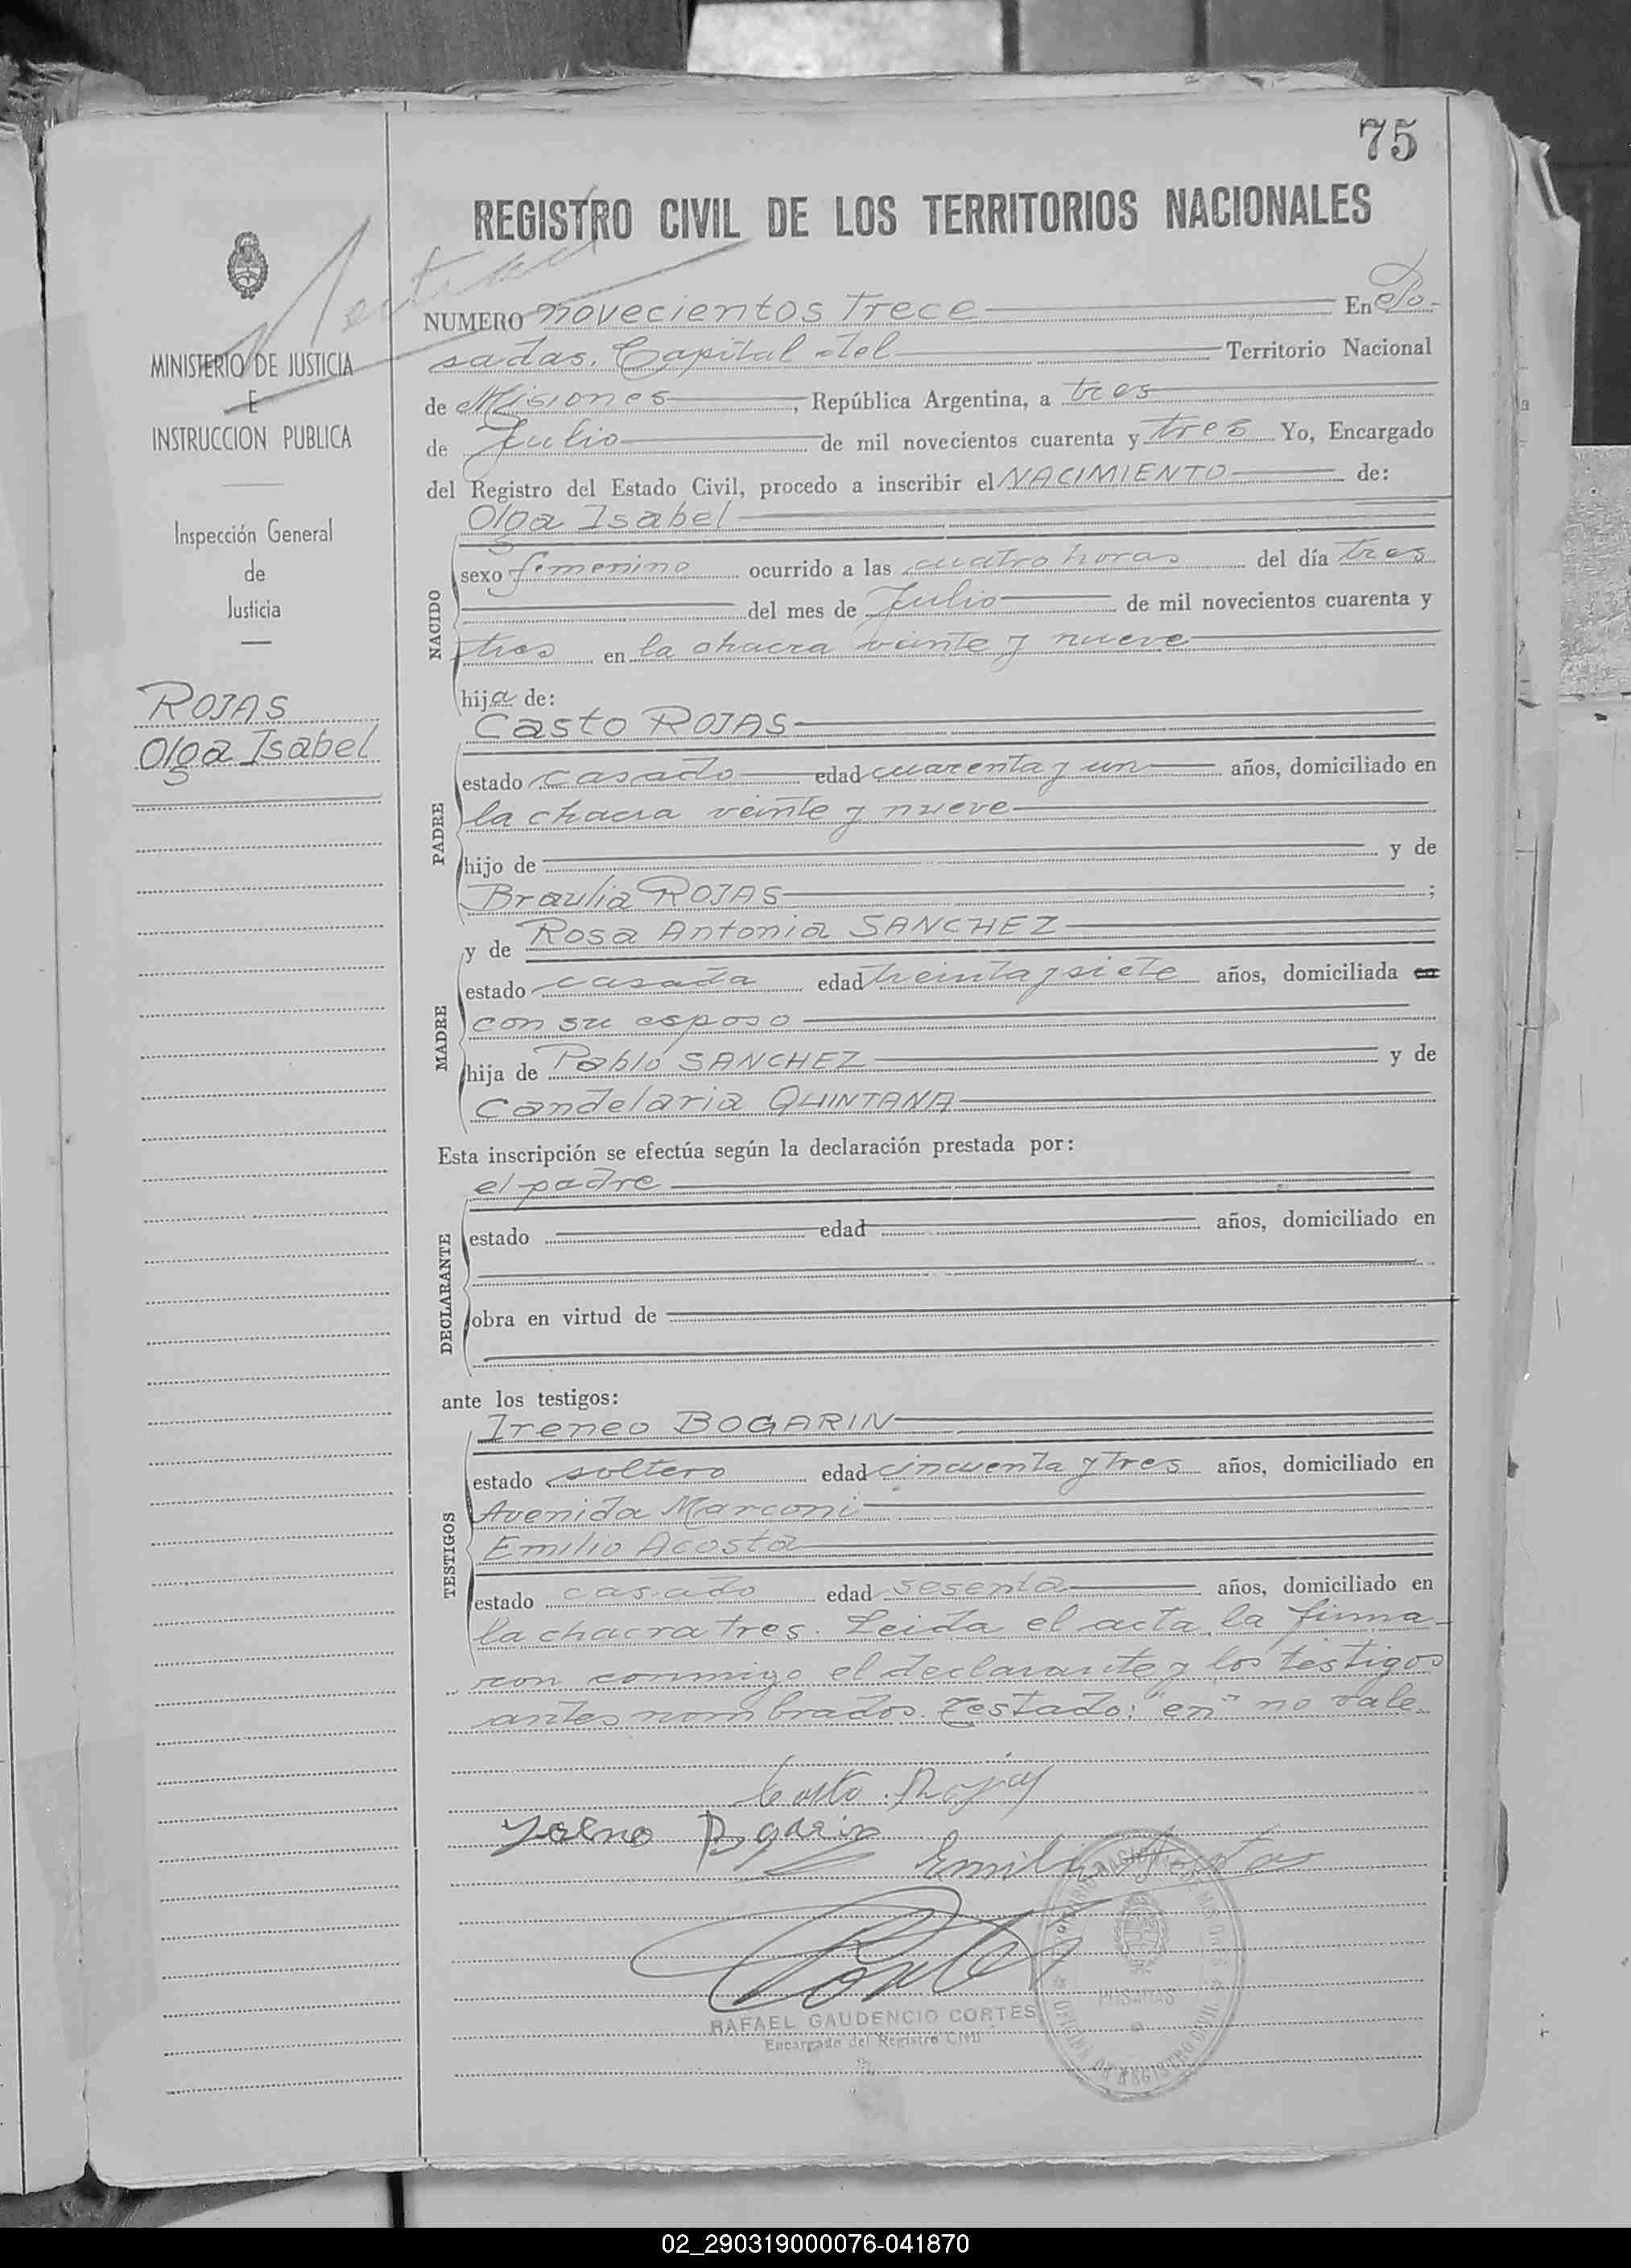 75
REGISTRO CIVIL DE LOS TERRITORIOS NACIONALES
NUMERO novecientos trece En Po-
sadas, Capital del Territorio Nacional
de Misiones, República Argentina, a tres
de Julio de mil novecientos cuarenta y tres Yo, Encargado
del Registro del Estado Civil, procedo a inscribir el NACIMIENTO de:
MINISTERIO DE JUSTICIA
E
INSTRUCCION PUBLICA
Inspección General
de
Justicia
ROJAS
Olga Isabel
NACIDO
Olga Isabel
sexo femenino ocurrido a las cuatro horas del día tres
del mes de Julio de mil novecientos cuarenta y
tres en la chacra veinte y nueve
hija de:
PADRE
Casto ROJAS
estado casado edad cuarenta y un años, domiciliado en
la chacra veinte y nueve
hijo de y de
Braulia ROJAS ;
MADRE
y de Rosa Antonia SANCHEZ
estado casada edad treinta y siete años, domiciliada en
con su esposo
hija de Pablo SANCHEZ y de
Candelaria QUINTANA
Esta inscripción se efectúa según la declaración prestada por:
DECLARANTE
el padre
estado edad años, domiciliado en
obra en virtud de
ante los testigos:
TESTIGOS
Ireneo BOGARIN
estado soltero edad cincuenta y tres años, domiciliado en
Avenida Marconi
Emilio Acosta
estado casado edad sesenta años, domiciliado en
la chacra tres. Leida el acta, la firma-
ron conmigo el declarante y los testigos
antes nombrados. Testado: "en" no vale.
Casto Rojas
Emilio Acosta
RAFAEL GAUDENCIO CORTES
Encargado del Registro Civil
POSADAS
OFICINA DE REGISTRO CIVIL
02_290319000076-041870